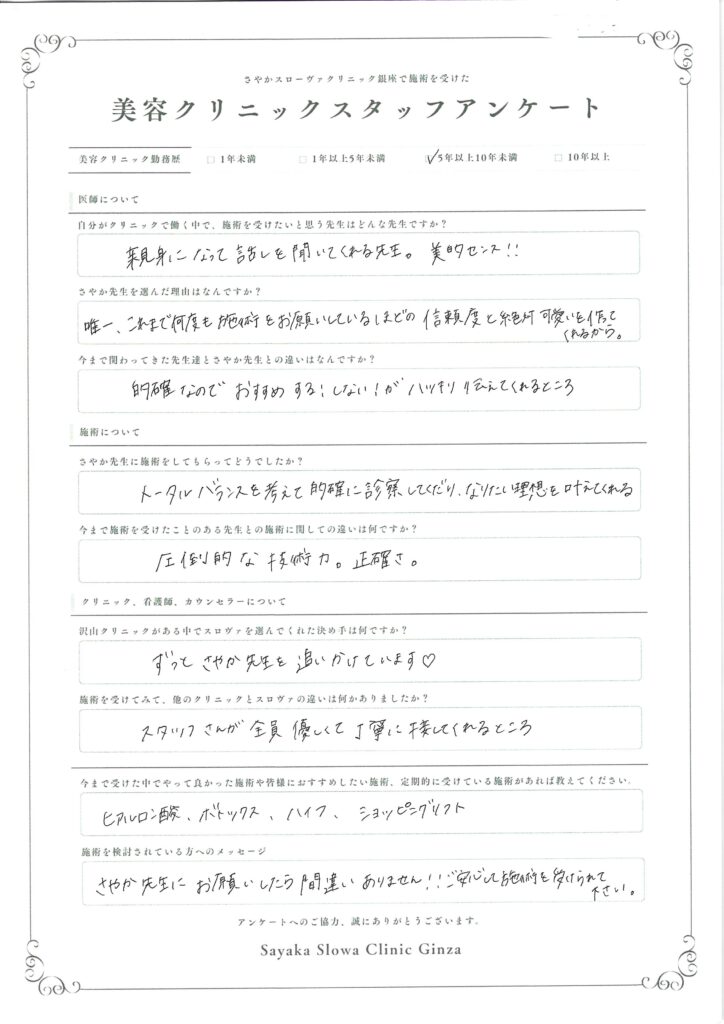 さやかスローヴァクリニック銀座で施術を受けた
美容クリニックスタッフアンケート
美容クリニック勤務歴 □ 1年未満 □ 1年以上5年未満 ☑ 5年以上10年未満 □ 10年以上
医師について
自分がクリニックで働く中で、施術を受けたいと思う先生はどんな先生ですか？
親身になって話しを聞いてくれる先生。 美的センス!!
さやか先生を選んだ理由はなんですか？
唯一、これまで何度も施術をお願いしているほどの 信頼度と絶対可愛いを作って
くれるから。
今まで関わってきた先生達とさやか先生との違いはなんですか？
的確なので おすすめする！しない！が ハッキリ 伝えてくれるところ
施術について
さやか先生に施術をしてもらってどうでしたか？
トータルバランスを考えて的確に診察してくだり、なりたい理想を叶えてくれる
今まで施術を受けたことのある先生との施術に関しての違いは何ですか？
圧倒的な 技術力。正確さ。
クリニック、看護師、カウンセラーについて
沢山クリニックがある中でスロヴァを選んでくれた決め手は何ですか？
ずっと さやか先生を 追いかけています♡
施術を受けてみて、他のクリニックとスロヴァの違いは何かありましたか？
スタッフさんが 全員 優しくて 丁寧に接してくれるところ
今まで受けた中でやって良かった施術や皆様におすすめしたい施術、定期的に受けている施術があれば教えてください。
ヒアルロン酸、ボトックス、ハイフ、ショッピングリフト
施術を検討されている方へのメッセージ
さやか先生に お願いしたら 間違いありません!!ご安心して施術を受けられて
下さい。
アンケートへのご協力、誠にありがとうございます。
Sayaka Slowa Clinic Ginza